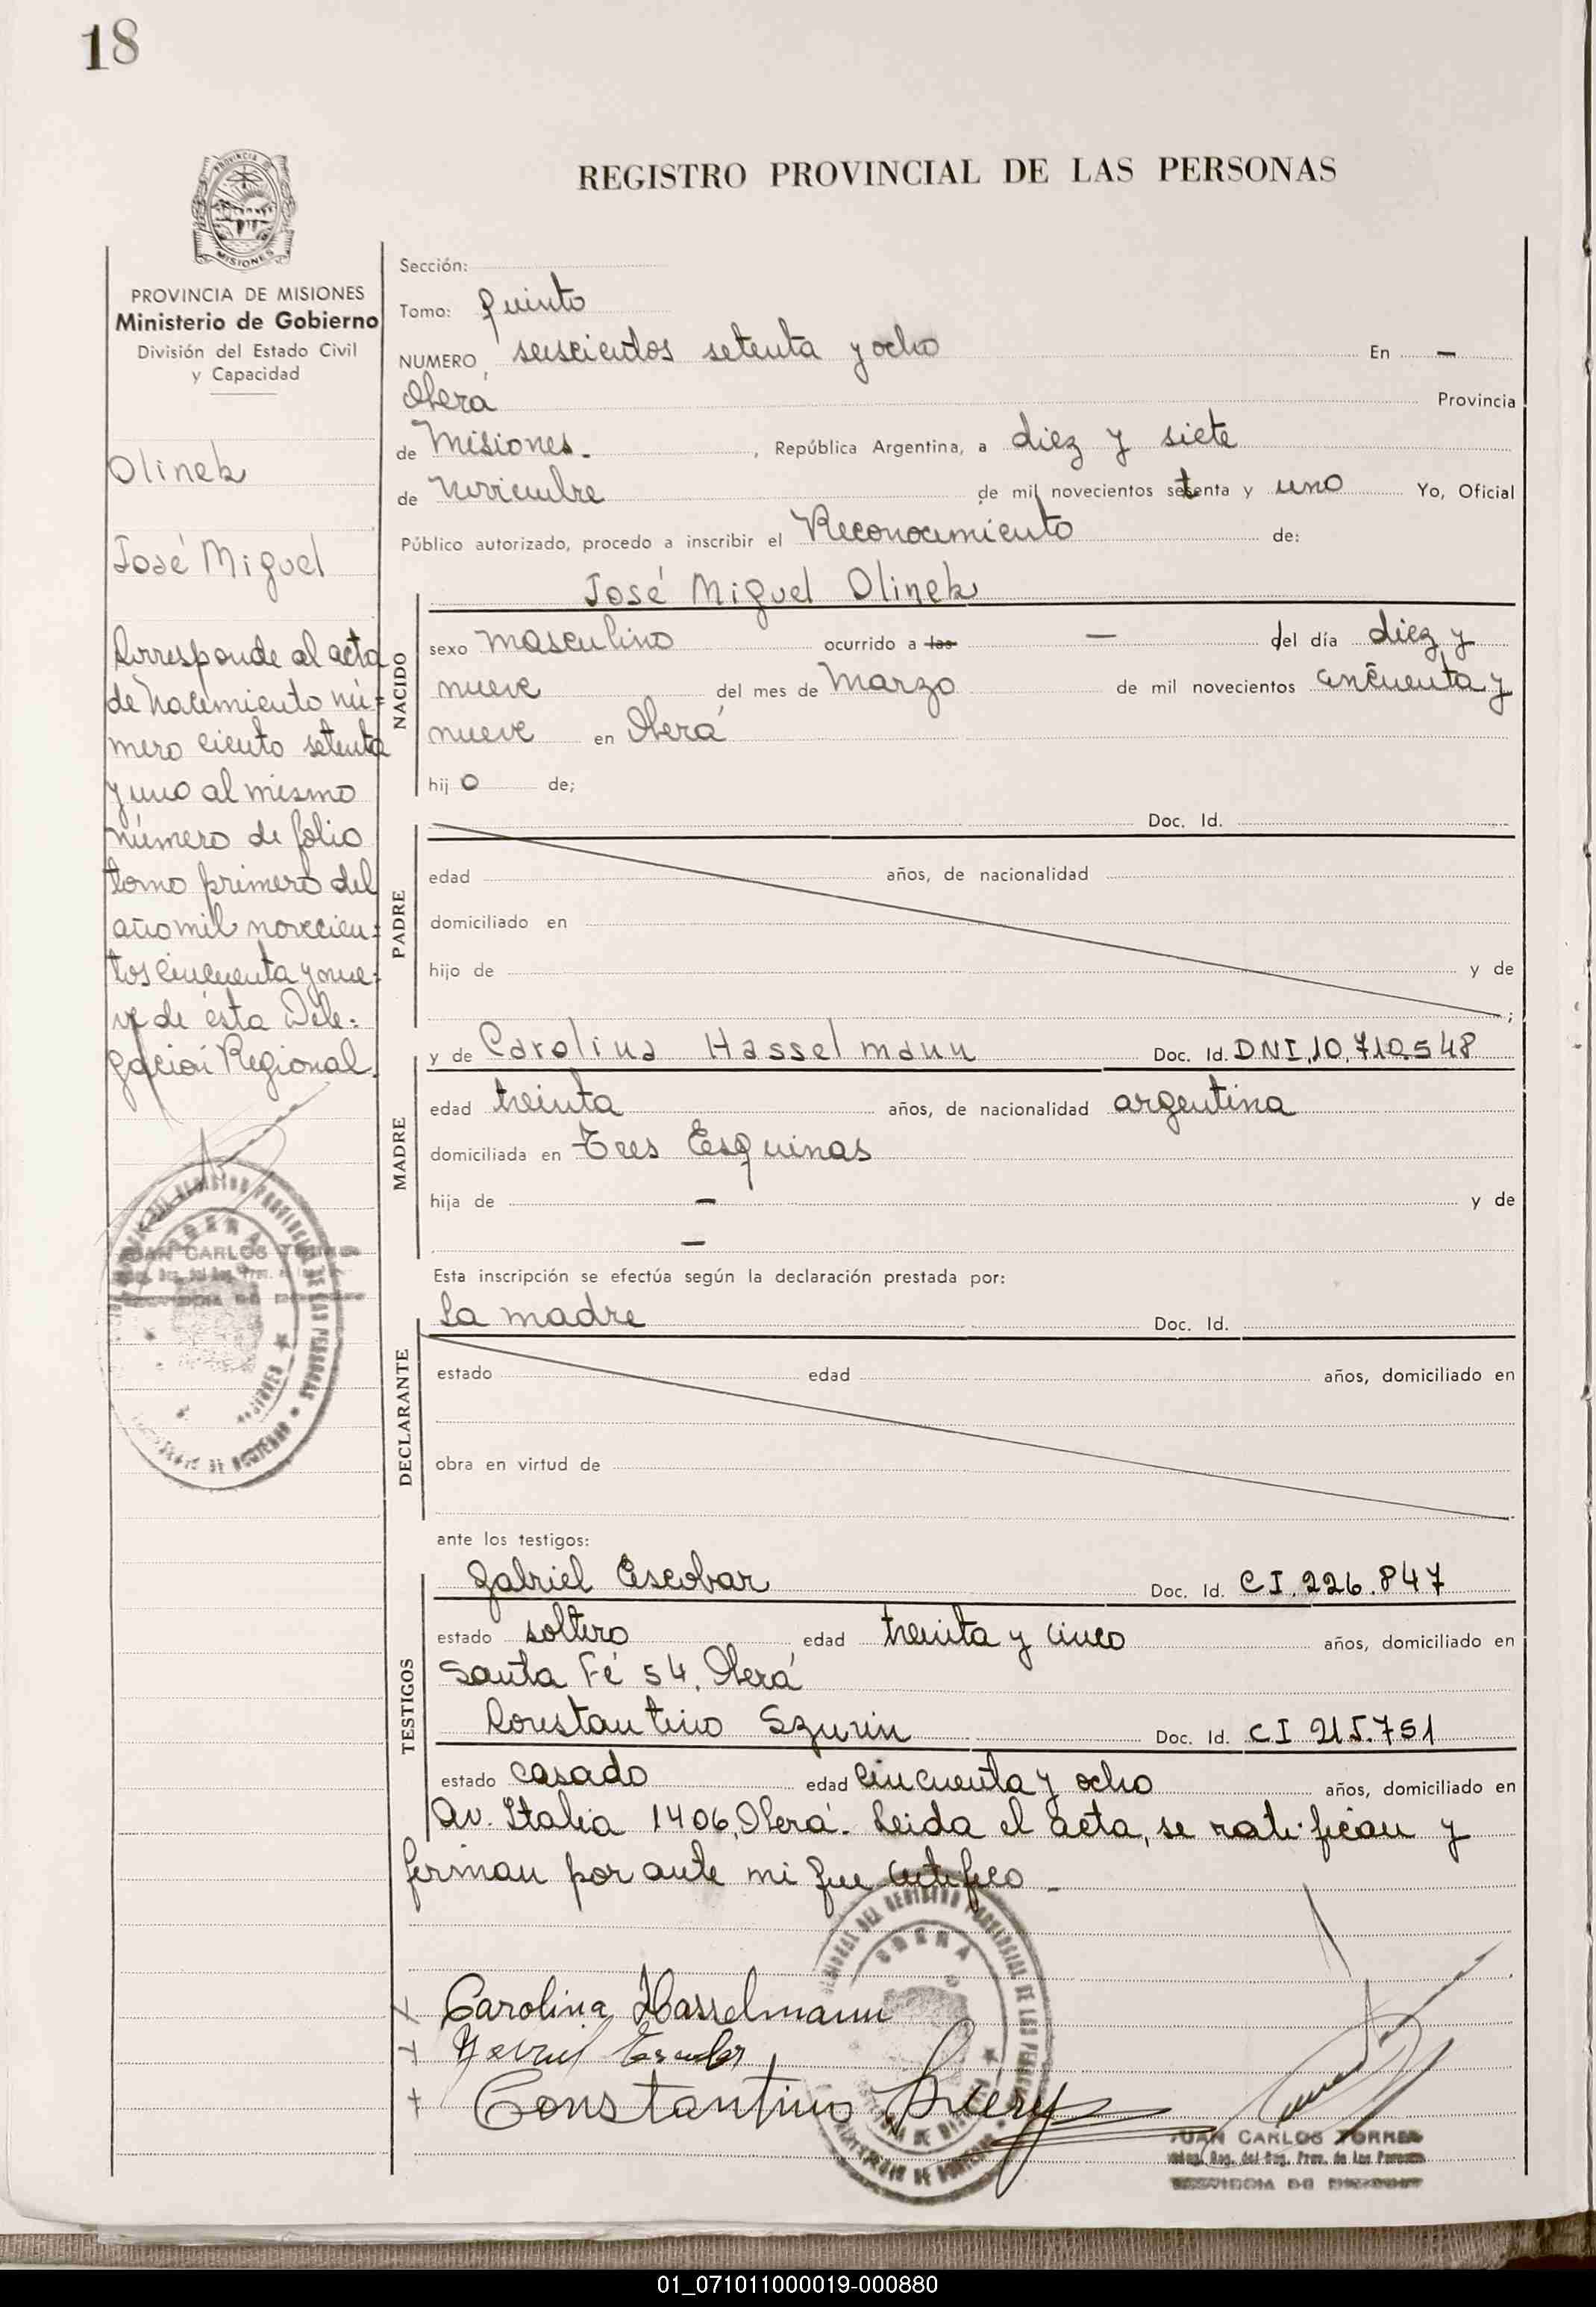 18
REGISTRO PROVINCIAL DE LAS PERSONAS
MISIONES
PROVINCIA DE MISIONES
Ministerio de Gobierno
División del Estado Civil
y Capacidad
Olinek
José Miguel
Corresponde al acta
de nacimiento nú=
mero ciento setenta
y uno al mismo
número de folio
tomo primero del
año mil novecien=
tos cincuenta y nue=
ve de ésta Dele=
gación Regional.
Sección:
Tomo: Quinto
NUMERO, seiscientos setenta y ocho En —
Oberá Provincia
de Misiones. , República Argentina, a diez y siete
de Noviembre de mil novecientos setenta y uno Yo, Oficial
Público autorizado, procedo a inscribir el Reconocimiento de:
José Miguel Olinek
NACIDO
sexo masculino ocurrido a las — del día diez y
nueve del mes de Marzo de mil novecientos cincuenta y
nueve en Oberá
hijo de;
Doc. Id.
PADRE
edad años, de nacionalidad
domiciliado en
hijo de y de
;
MADRE
y de Carolina Hasselmann Doc. Id. DNI.10.710.548
edad treinta años, de nacionalidad argentina
domiciliada en Tres Esquinas
hija de — y de
—
Esta inscripción se efectúa según la declaración prestada por:
La madre Doc. Id.
DECLARANTE
estado edad años, domiciliado en
obra en virtud de
ante los testigos:
TESTIGOS
Gabriel Escobar Doc. Id. CI.226.847
estado soltero edad treinta y cinco años, domiciliado en
Santa Fé 54, Oberá
Constantino Doc. Id. CI 215.751
estado casado edad cincuenta y ocho años, domiciliado en
Av. Italia 1406, Oberá. Leida el acta, se ratifican y
firman por ante mi que certifico
Carolina Hasselmann
Constantino
OBERA
MINISTERIO DE GOBIERNO
JUAN CARLOS TORRES
01_071011000019-000880